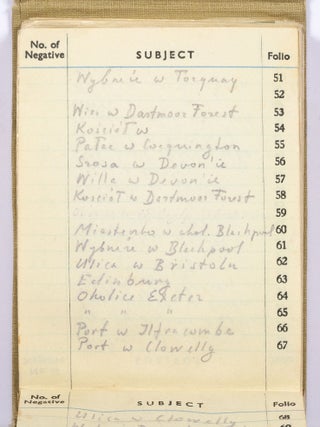 No. of Negative SUBJECT Folio
Wybrzeże w Torquay 51
52
Wieś w Dartmoor Forest 53
Kościół w 54
Pałac w Cocquington 55
Szosa w Devon'ie 56
Willa w Devon'ie 57
Kościół w Dartmoor Forest 58
59
Miasteczko w okol. Blackpool 60
Wybrzeże w Blackpool 61
Ulica w Bristolu 62
Edinburg 63
Okolice Exeter 64
" " " 65
Port w Ilfracombe 66
Port w Clowelly 67
No. of Negative SUBJECT Folio
Ulica w Clowelly 68